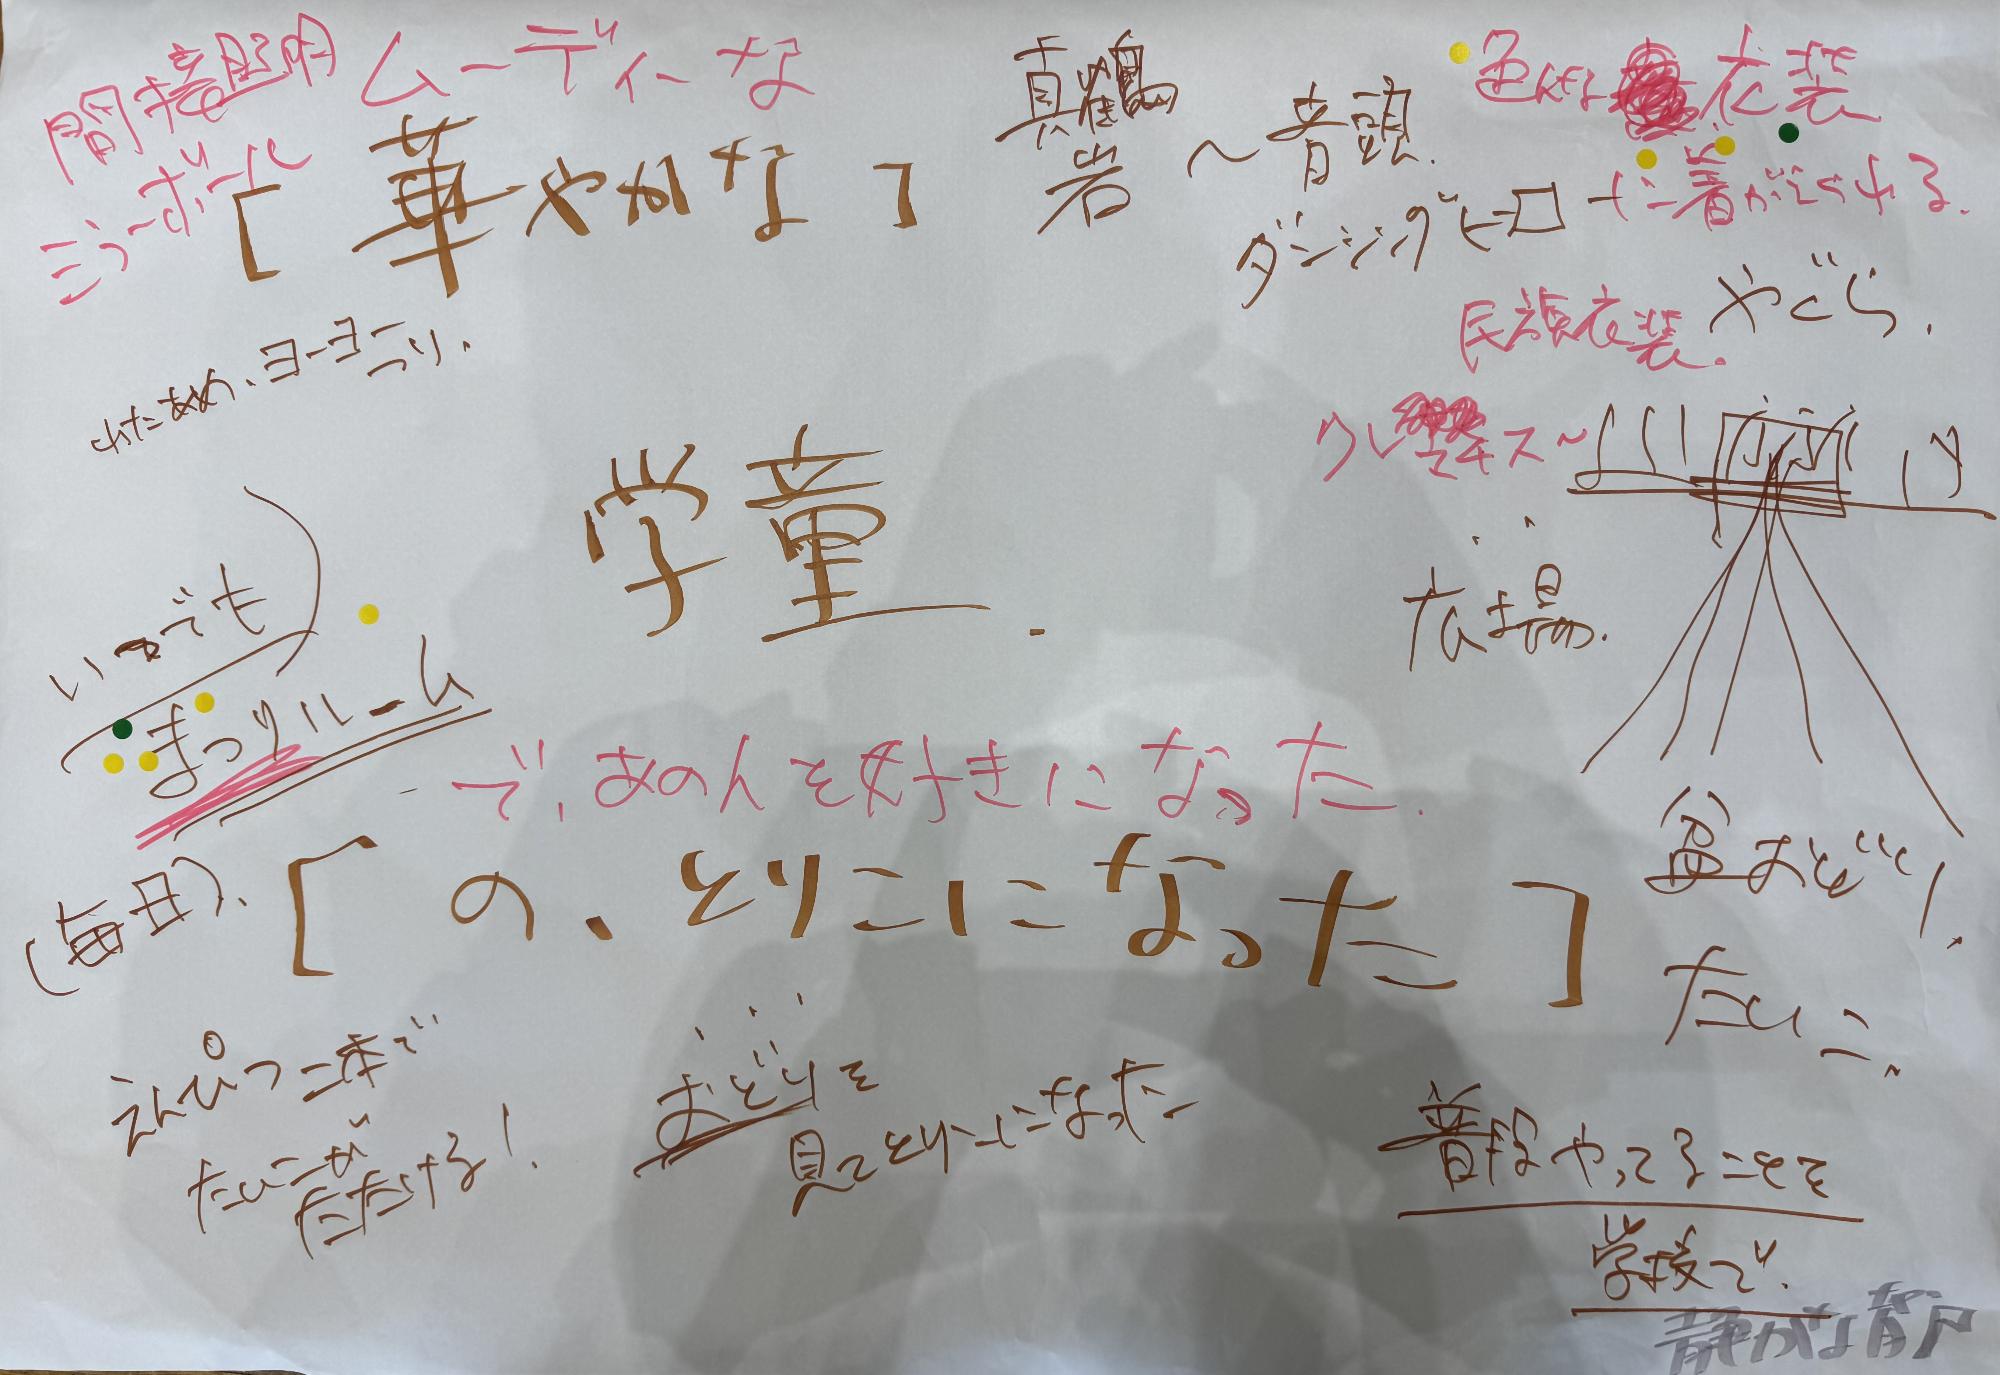 間接照明
ムーディーな
ミラーボール
[華やかな]
真鶴
岩
〜音頭.
ダンシングヒーロー
色んな
衣装
に着がえられる.
民族衣装.
やぐら.
わたあめ、ヨーヨーつり.
学童.
広場.
いつでも
まつりルーム
(毎日)、
で、あの人を好きになった.
[の、とりこになった]
盆おどり、
たいこ、
えんぴつ二本で
たいこが
たたける!
おどりを
見てとりこになった
普段やってることを
学校で.
静かな